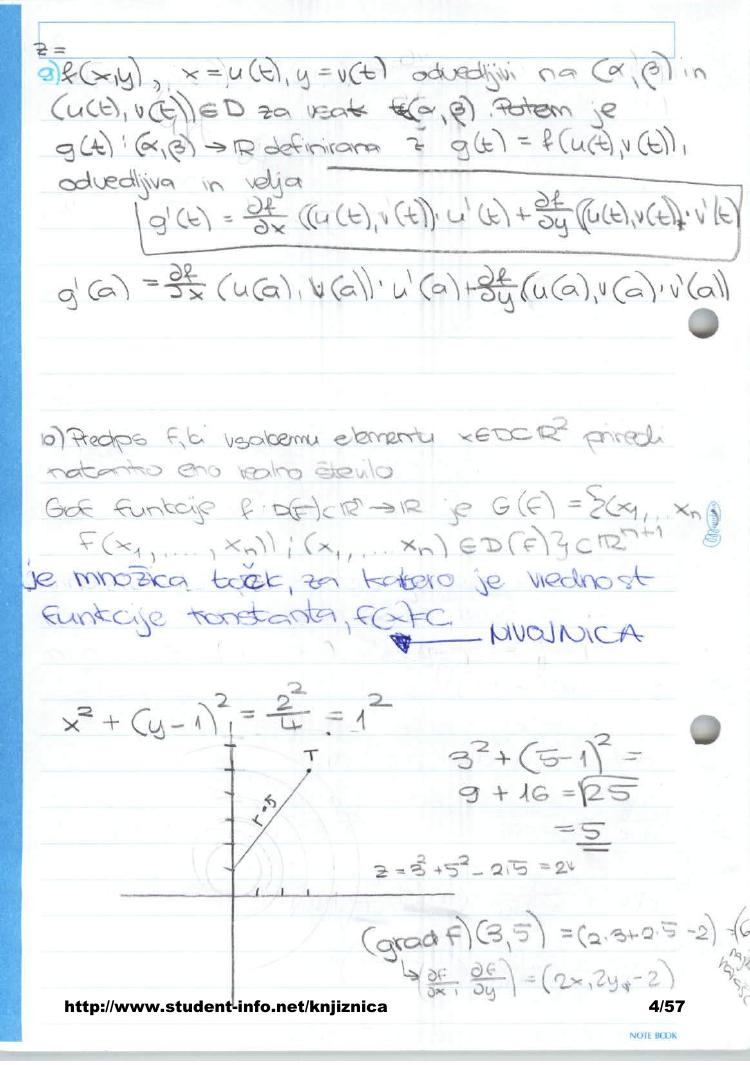 z =
a) f(x,y), x = u(t), y = v(t) odvedljivi na (α, β) in
(u(t), v(t)) ∈ D za vsak t∈(α, β). Potem je
g(t): (α, β) → R definirana z g(t) = f(u(t), v(t)),
odvedljiva in velja
g'(t) = ∂f/∂x ((u(t), v(t)) · u'(t) + ∂f/∂y ((u(t), v(t)) · v'(t)
g'(a) = ∂f/∂x (u(a), v(a)) · u'(a) + ∂f/∂y (u(a), v(a) · v'(a))
b) Predpis f, ki vsakemu elementu x∈D⊂R² priredi
natanko eno realno število
Graf funkcije f: D(f)⊂Rⁿ → R je G(f) = {(x₁,... xₙ,
f(x₁, ...., xₙ)) ; (x₁, .... xₙ) ∈ D(f)} ⊂ Rⁿ⁺¹
je množica točk, za katero je vrednost
funkcije konstanta, f(x)=C
NIVOJNICA
x² + (y-1)² = 2²/4 = 1²
T
r=5
3² + (5-1)² =
9 + 16 = √25
= 5
z = 3² + 5² - 2·5 = 24
(grad f)(3,5) = (2·3+2·5-2) = (6
(∂f/∂x, ∂f/∂y) = (2x, 2y-2)
http://www.student-info.net/knjiznica 4/57
NOTE BOOK